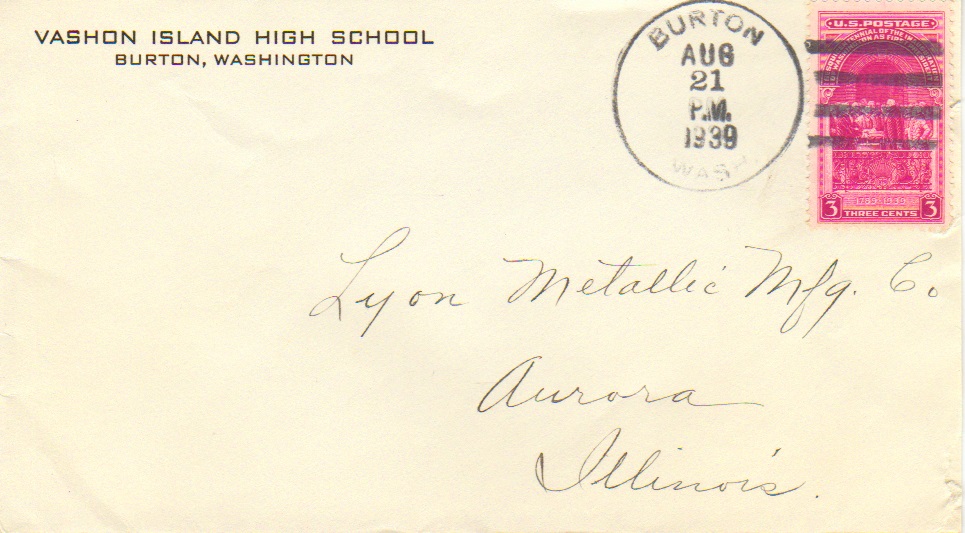 VASHON ISLAND HIGH SCHOOL
BURTON, WASHINGTON
BURTON
AUG
21
P.M.
1939
WASH.
U.S. POSTAGE
1789-1939
3 THREE CENTS 3
Lyon Metallic Mfg. Co.
Aurora
Illinois.